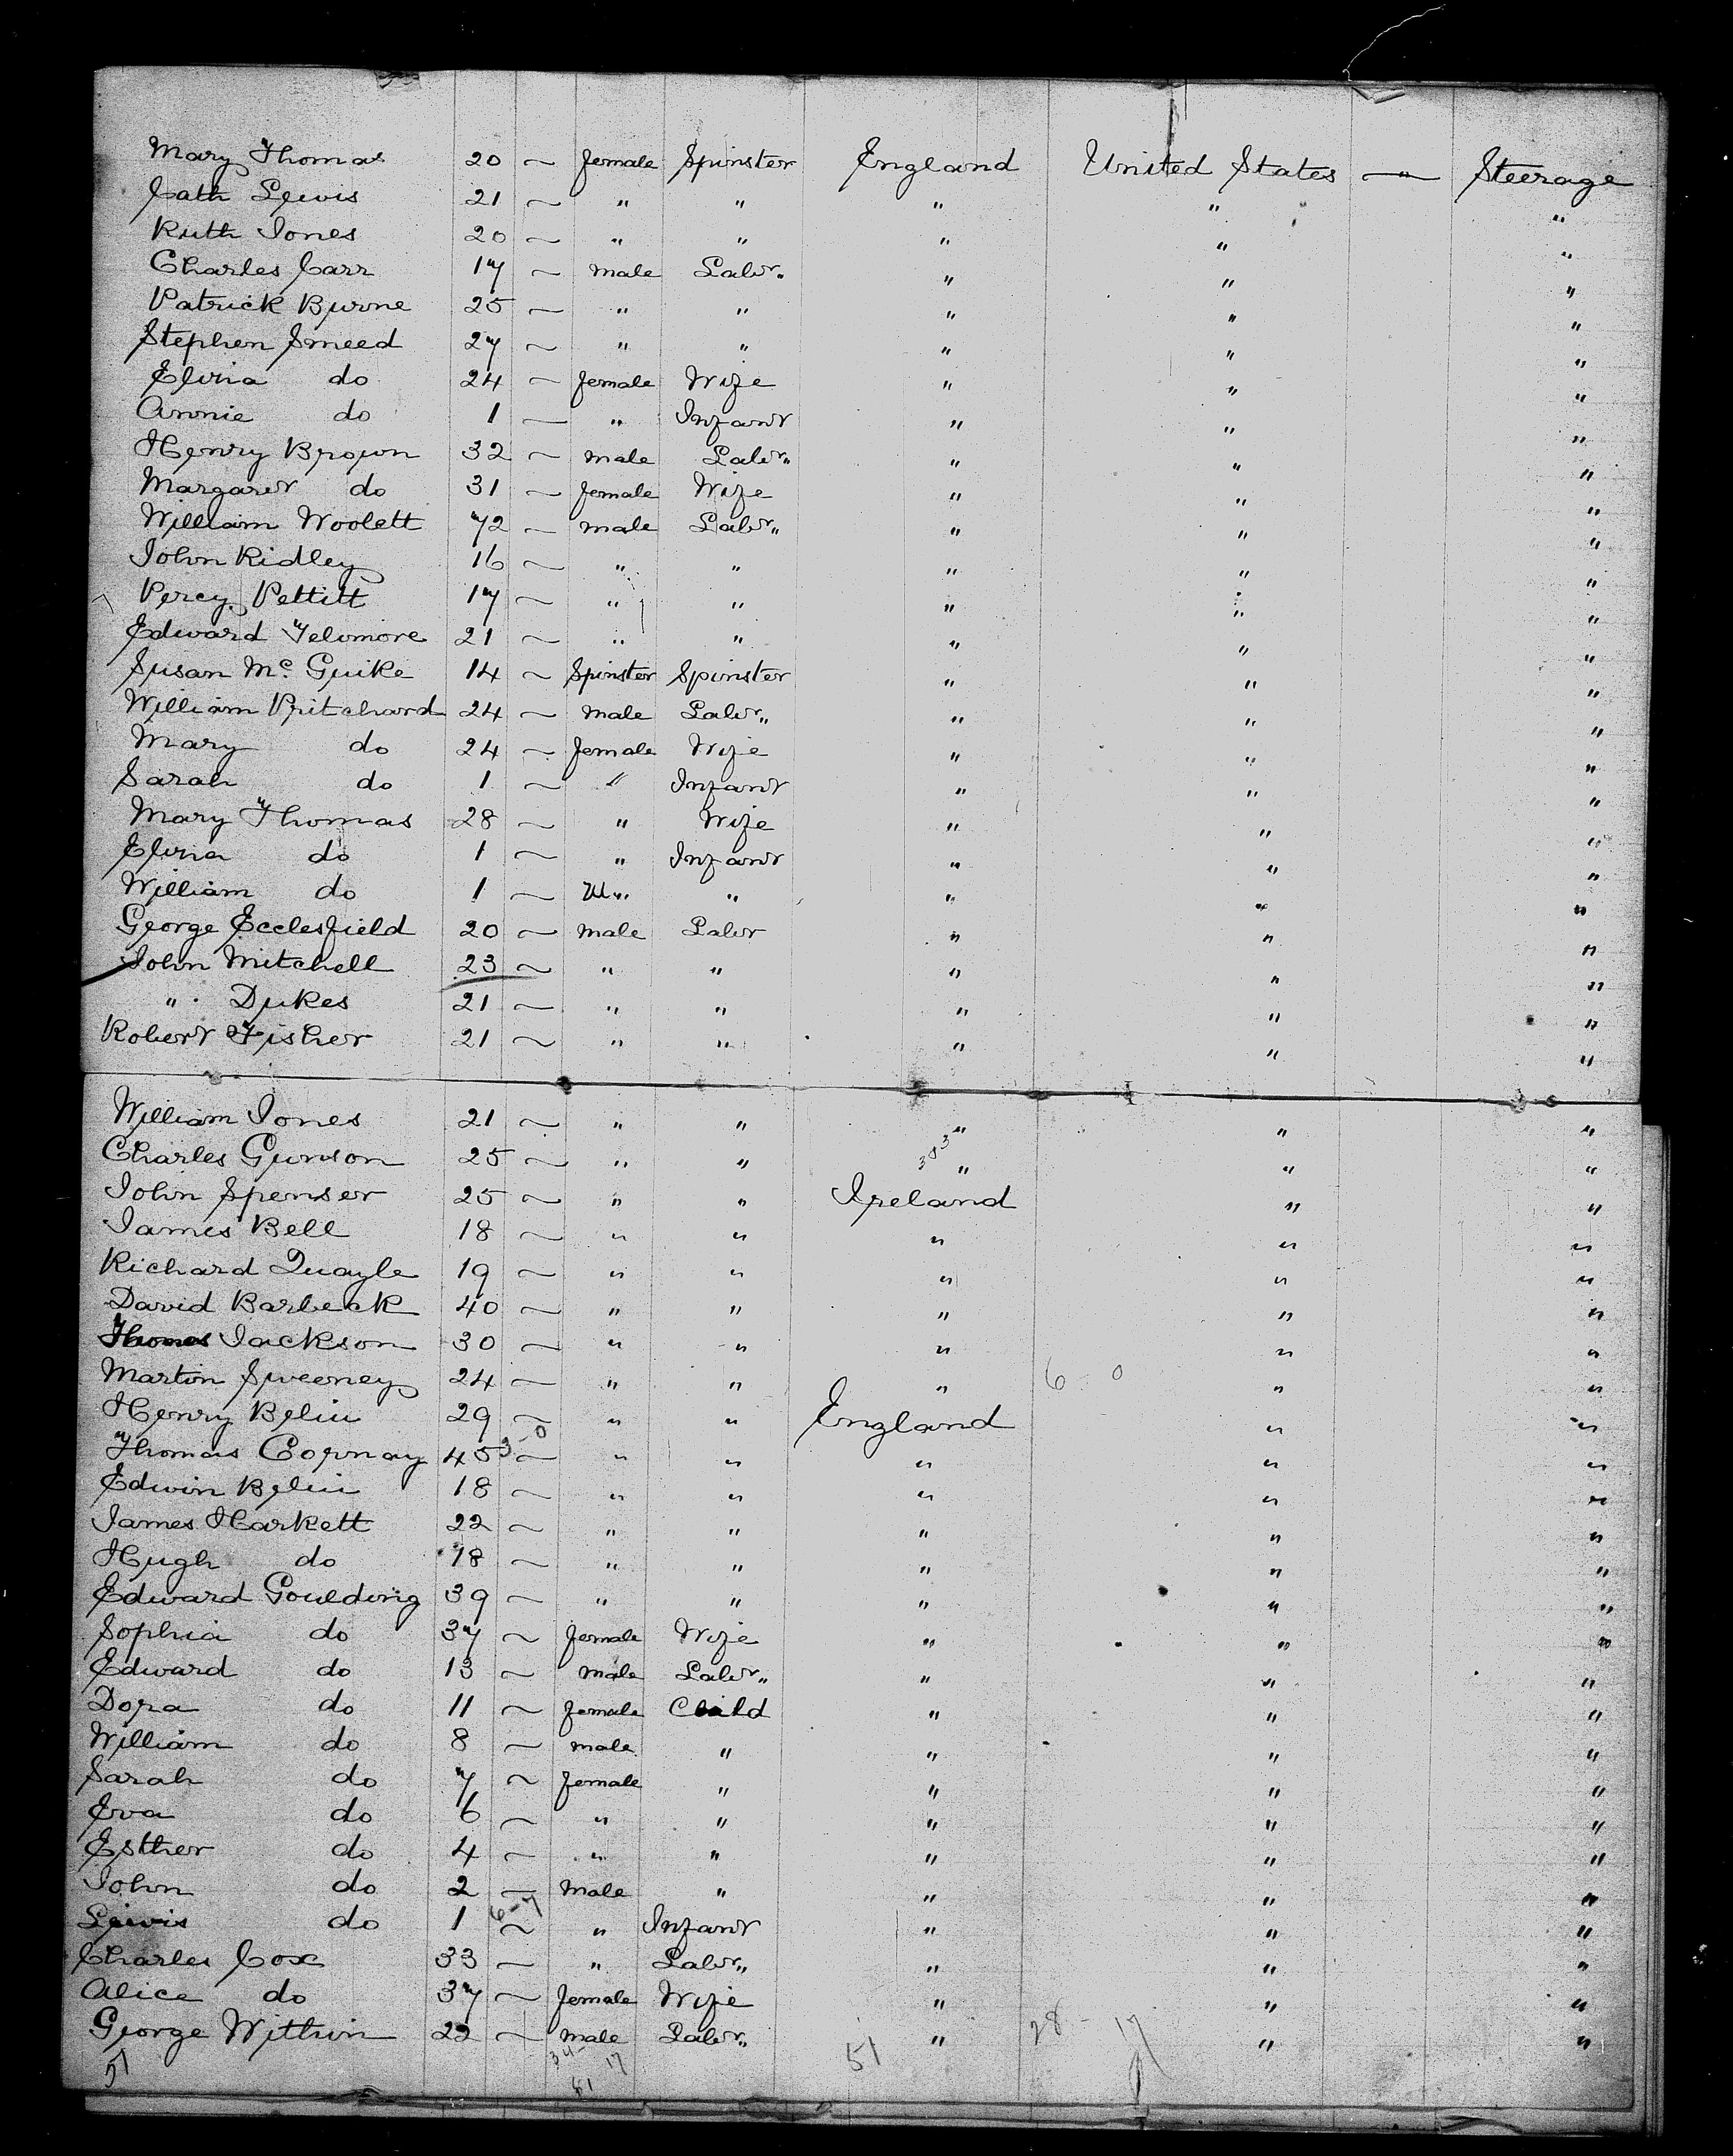 Mary Thomas 20 ~ female Spinster England United States —"— Steerage
Cath Lewis 21 ~ " " " " "
Ruth Jones 20 ~ " " " " "
Charles Carr 17 ~ male Labr. " " "
Patrick Burne 25 ~ " " " " "
Stephen Smeed 27 ~ " " " " "
Eliza do 24 ~ female Wife " " "
Annie do 1 — " Infant " " "
Henry Brown 32 ~ male Labr. " " "
Margaret do 31 ~ female Wife " " "
William Woolett 72 ~ male Labr. " " "
John Ridley 16 ~ " " " " "
Percy Pettitt 17 ~ " " " " "
Edward 21 ~ " " " " "
Susan Mc. Guike 14 ~ Spinster Spinster " " "
William Pritchard 24 ~ male Labr. " " "
Mary do 24 ~ female Wife " " "
Sarah do 1 ~ " Infant " " "
Mary Thomas 28 ~ " Wife " " "
Eliza do 1 ~ " Infant " " "
William do 1 ~ M.. " " " "
George Ecclesfield 20 ~ male Labr " " "
John Mitchell 23 ~ " " " " "
" Dukes 21 ~ " " " " "
Robert Fisher 21 ~ " " " " "
William Jones 21 ~ " " " " "
Charles Gunson 25 ~ " " " " "
John Spenser 25 ~ " " Ireland " "
James Bell 18 ~ " " " " "
Richard Quayle 19 ~ " " " " "
David Barbeck 40 ~ " " " " "
Thomas Jackson 30 ~ " " " " "
Martin Sweeney 24 ~ " " " 6 0 " "
Henry 29 ~ " " England " "
Thomas Cornay 45 3-0 ~ " " " " "
Edwin 18 ~ " " " " "
James Harkett 22 ~ " " " " "
Hugh do 18 ~ " " " " "
Edward Goulding 39 ~ " " " " "
Sophia do 37 ~ female Wife " " "
Edward do 13 ~ male Labr. " " "
Dora do 11 ~ female Child " " "
William do 8 ~ male " " " "
Sarah do 7 ~ female " " " "
Eva do 6 ~ " " " " "
Esther do 4 ~ " " " " "
John do 2 — male " " " "
Lewis do 1 6-7 ~ " Infant " " "
Charles Cox 33 ~ " Labr. " " "
Alice do 37 ~ female Wife " " "
George Withrin 22 ~ male Labr. " 28 - 17 " "
51 34- 17 51
51